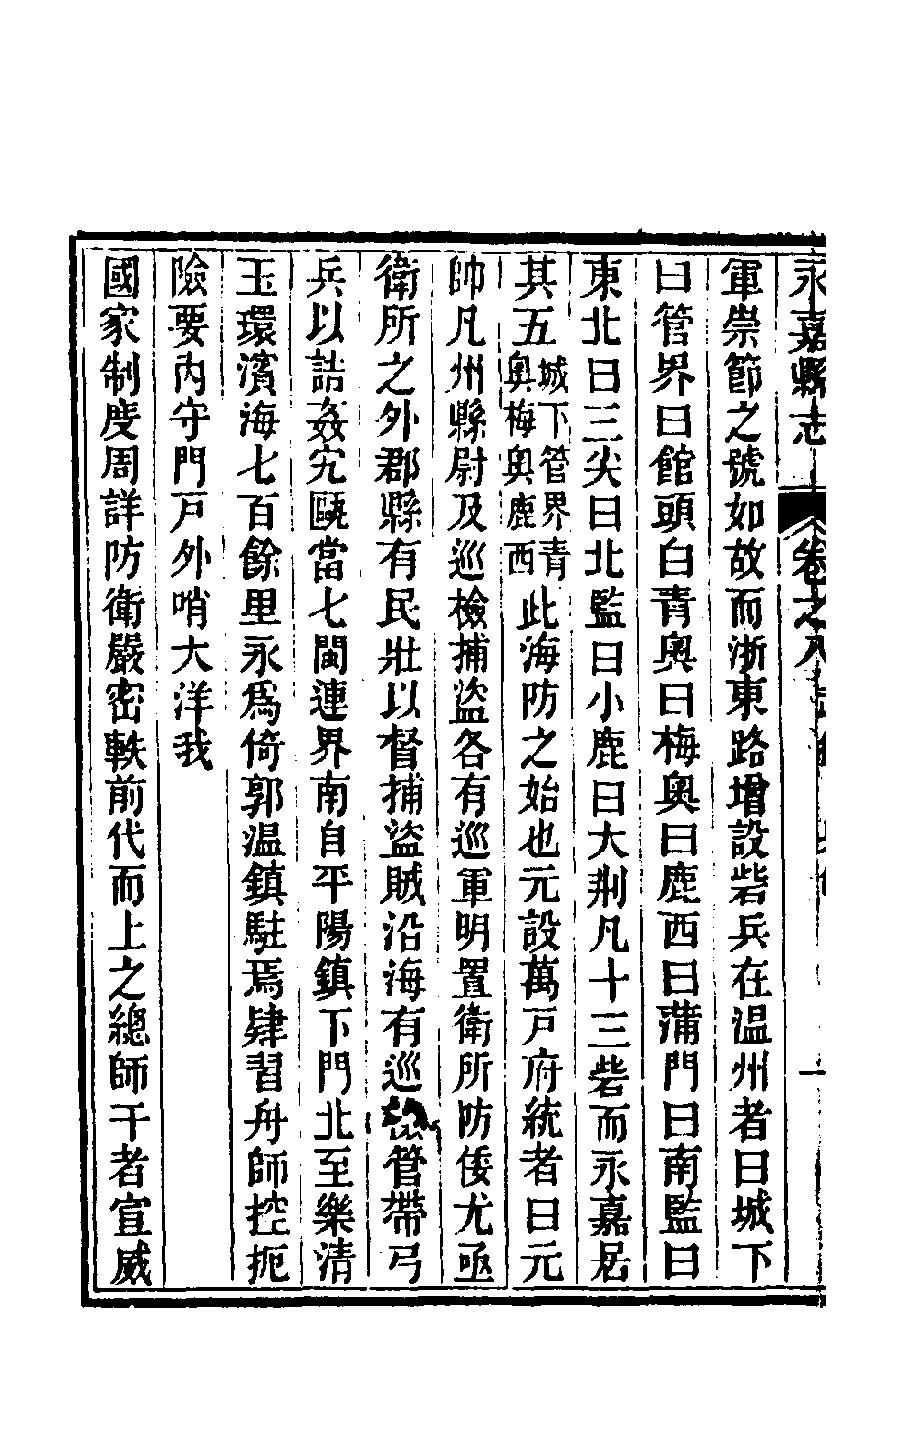 永嘉縣志 卷之八
軍崇節之號如故而浙東路增設砦兵在温州者曰城下
曰管界曰館頭曰青奥曰梅奥曰鹿西曰蒲門曰南監曰
東北曰三尖曰北監曰小鹿曰大荆凡十三砦而永嘉居
其五城下管界青奥梅奥鹿西此海防之始也元設萬戸府統者曰元
帥凡州縣尉及巡檢捕盜各有巡軍明置衛所防倭尤亟
衛所之外郡縣有民壯以督捕盜賊沿海有巡管帶弓
兵以詰姦宄甌當七閩連界南自平陽鎮下門北至樂清
玉環濱海七百餘里永爲倚郭温鎮駐焉肄習舟師控扼
險要内守門戸外哨大洋我
國家制度周詳防衛嚴密軼前代而上之總師干者宣威